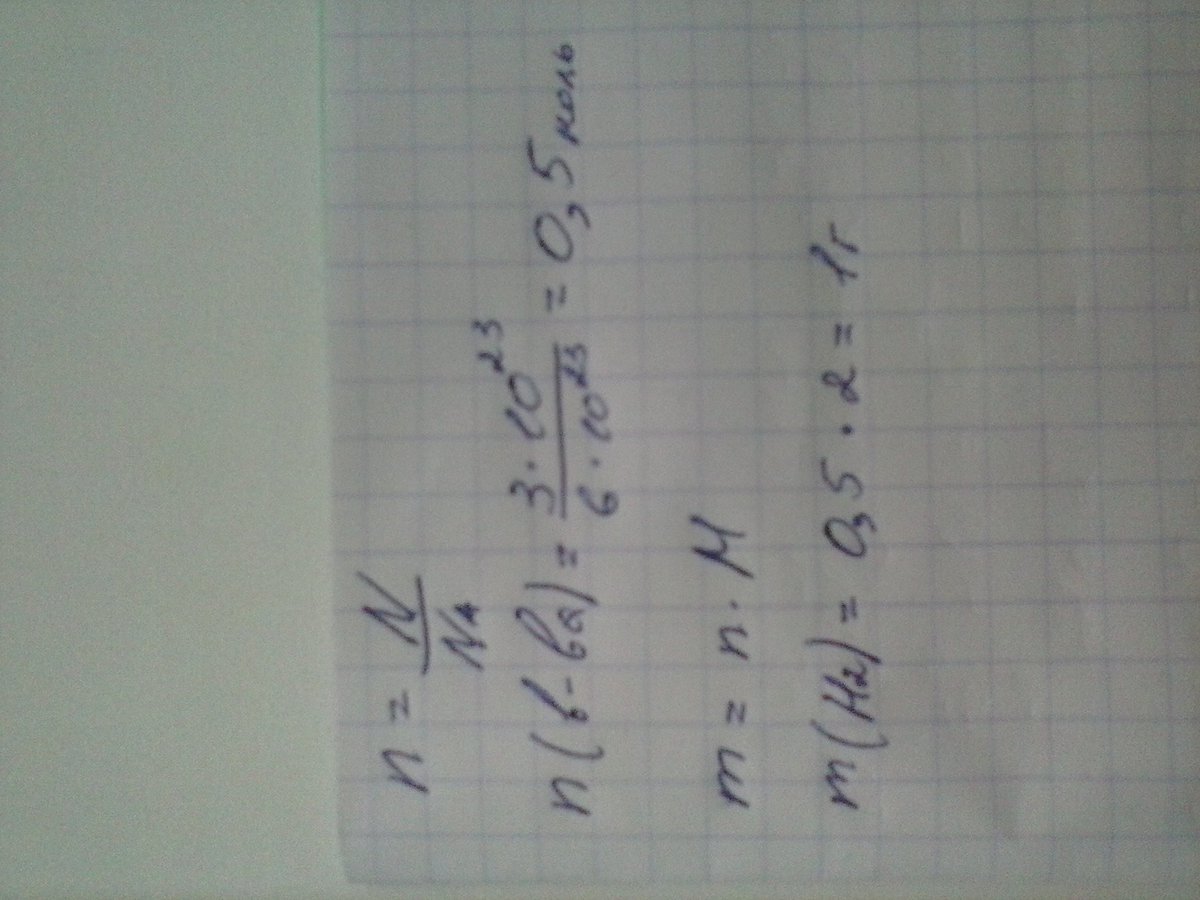 n = N/Nₐ
n(в-ва) = 3·10²³/6·10²³ = 0,5 моль
m = n · M
m(H₂) = 0,5 · 2 = 1г